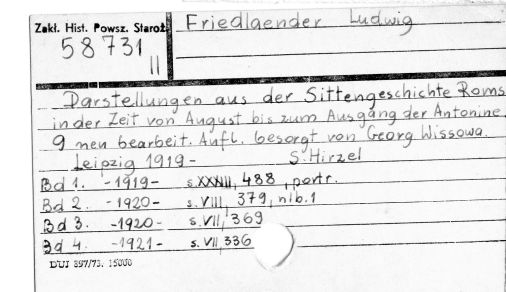 Zakł. Hist. Powsz. Staroż.
58731
II
Friedlaender Ludwig
Darstellungen aus der Sittengeschichte Roms
in der Zeit von August bis zum Ausgang der Antonine.
9 neu bearbeit. Aufl. besorgt von Georg Wissowa.
Leipzig 1919- S. Hirzel
Bd 1. -1919- s. XXXII, 488, portr.
Bd 2. -1920- s. VIII, 379, nlb. 1
Bd 3. -1920- s. VII, 369
Bd 4. -1921- s. VII, 336
DUJ 897/73. 15000